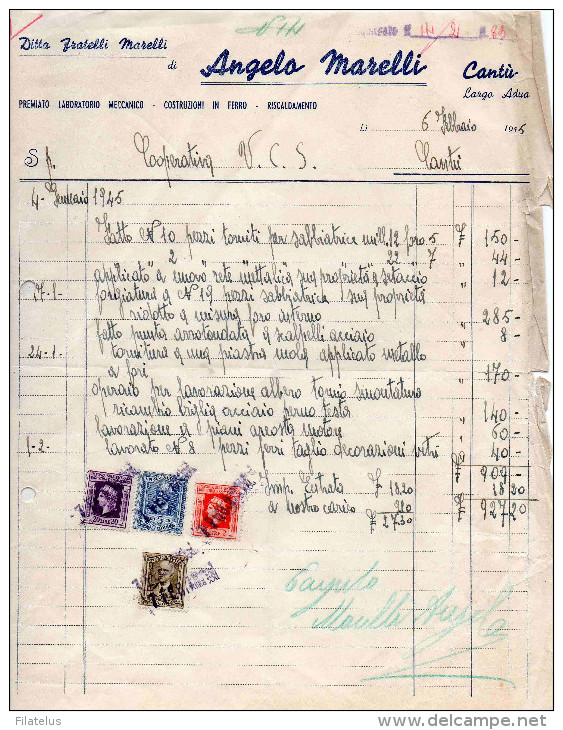 N 14
Ditta Fratelli Marelli
di
Angelo Marelli
Cantù
Largo Adua
PREMIATO LABORATORIO MECCANICO - COSTRUZIONI IN FERRO - RISCALDAMENTO
Li 6 Febbraio 1945
Sp. Cooperativa V. C. S. Cantù
4- Gennaio 1945
Fatto N 10 pezzi torniti per sabbiatrice mill. 12 foro 5 £ 150-
2 22 7 " 44-
applicato a nuovo rete mettalica su proprietà a setaccio " 12-
17-1- forgiatura a N 19 pezzi sabbiatrice sua proprietà
ridotto a misura foro interno " 285-
fatto punta arrotondata a scalpelli acciaio " 8-
24-1- tornitura a una piastra mola applicato metallo
a fori " 170-
operaio per lavorazione albero tornio smontatura
ricambio biglie acciaio perno testa " 140-
lavorazione a piani motore " 60-
1-2- lavorato N 8 pezzi ferri taglio decorazioni vetri " 40-
£ 909-
Imp. Entrata £ 18.20 18.20
a vostro carico 9.10 £ 927.20
£ 27.30
Pagato
Marelli Angelo
© Filatelus
www.delcampe.net